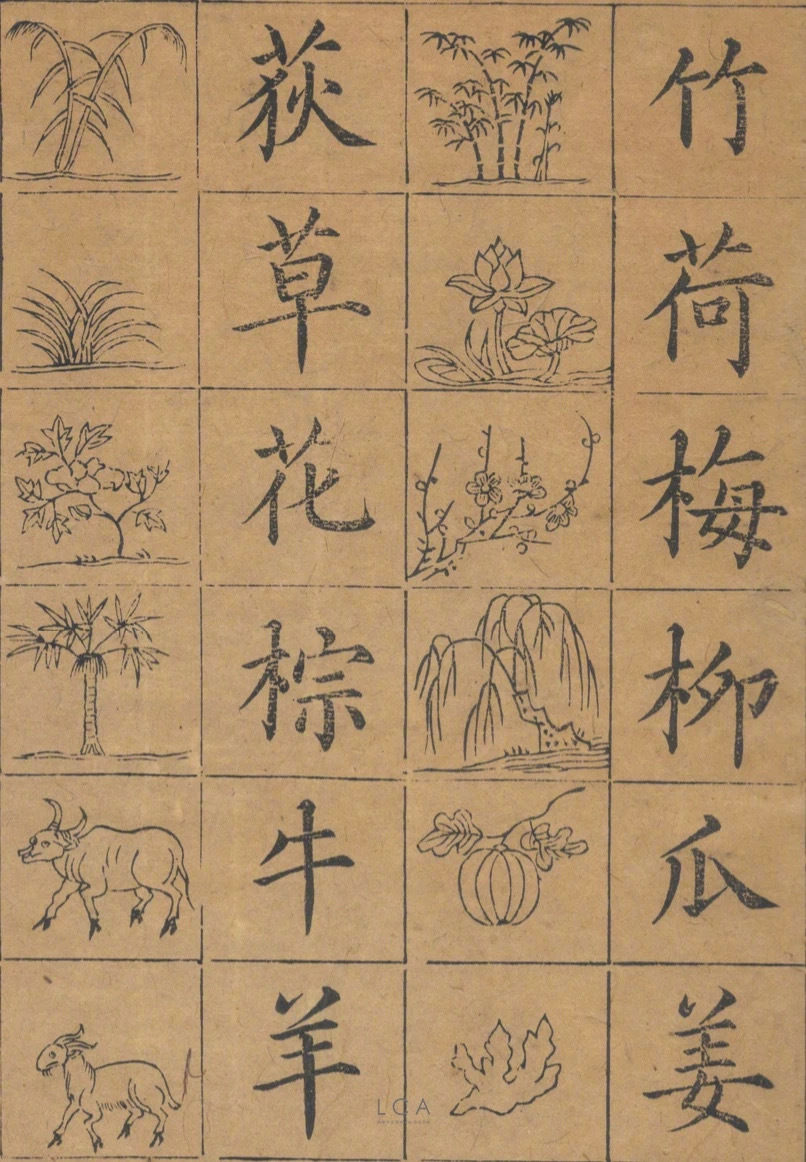 竹
荷
梅
柳
瓜
姜
荻
草
花
棕
牛
羊
LCA